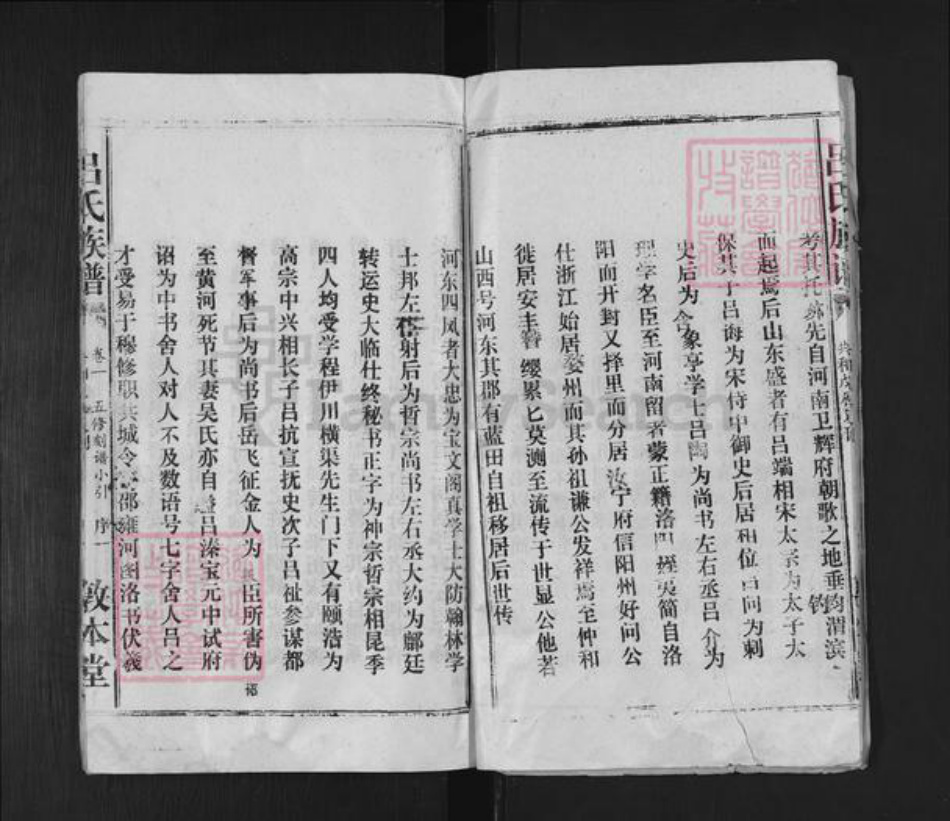 吕氏族谱
先自河南卫辉府朝歌之地垂钧渭滨
而起焉后山东盛者有吕端相宋太宗为太子太
保其子吕诲为宋侍中御史后居相位吕问为刺
史后为 象亭学士吕陶为尚书左右丞吕 为
理学名臣至河南留者蒙正籍洛阳 夷简自洛
阳而开封又择里而分居汝宁府信阳州好问公
仕浙江始居婺州而其孙祖谦公发祥焉至仲和
徙居安丰簪缨累匕莫测至流传于世显公他若
山西号河东其郡有蓝田自祖移居后世传
河东四凤者大忠为宝文阁真学士大防翰林学
士邦左 射后为哲宗尚书左右丞大约为鄜廷
转运史大临仕终秘书正字为神宗哲宗相昆季
四人均受学程伊川横渠先生门下又有颐浩为
高宗中兴相长子吕抗宣抚史次子吕祉参谋都
督军事后为尚书后岳飞征金人为 臣所害伪
至黄河死节其妻吴氏亦自 吕溱宝元中试府
诏为中书舍人对人不及数语号七字舍人吕之
才受易于穆修职共城令 邵雍河图洛书伏羲
吕氏族谱
卷一
五修刻谱小引
序一
敦本堂